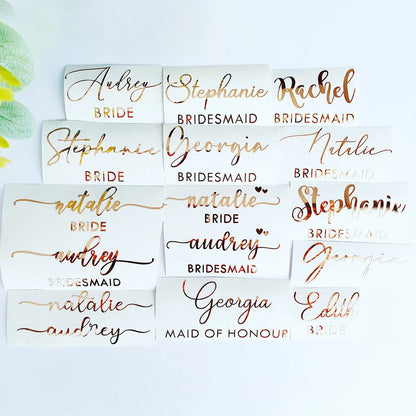 Audrey
BRIDE
Stephanie
BRIDESMAID
Rachel
BRIDESMAID
Stephanie
BRIDE
Georgia
BRIDESMAID
Natalie
BRIDESMAID
natalie
BRIDE
audrey
BRIDESMAID
natalie
BRIDE
audrey
BRIDESMAID
Stephanie
BRIDESMAID
Georgia
natalie
audrey
Georgia
MAID OF HONOUR
Edith
BRIDE